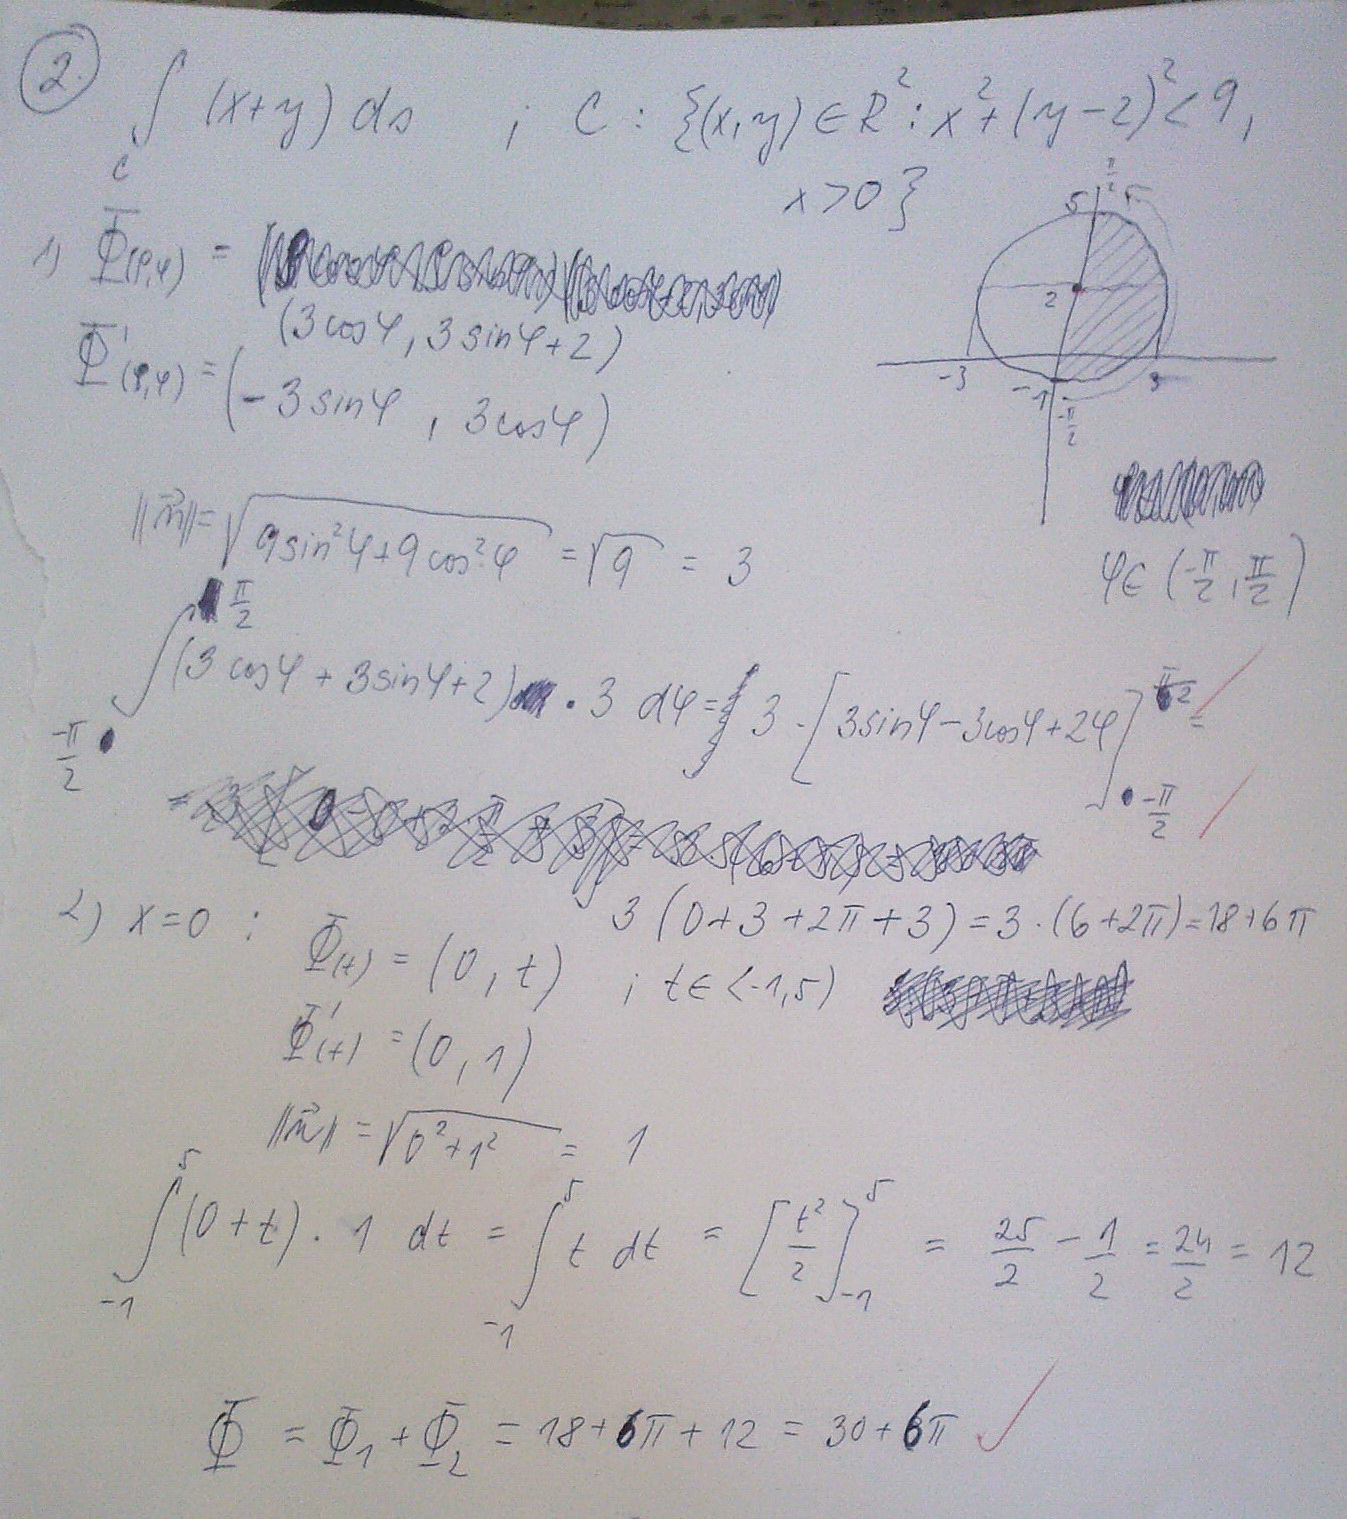 2.
∫ (x+y) ds ; C : {(x,y) ∈ R² : x² + (y-2)² < 9,
C
x > 0}
1) Φ(ρ,φ) =
(3cosφ, 3sinφ+2)
Φ'(ρ,φ) = (-3sinφ, 3cosφ)
π/2
5
2
-3 -1 3
-π/2
||n⃗|| = √(9sin²φ + 9cos²φ) = √9 = 3
φ ∈ (-π/2, π/2)
∫_{-π/2}^{π/2} (3cosφ + 3sinφ + 2) · 3 dφ = 3 · [3sinφ - 3cosφ + 2φ]_{-π/2}^{π/2} =
=
3 (0+3+2π+3) = 3·(6+2π) = 18+6π
2) x=0 : Φ(t) = (0, t) ; t ∈ <-1,5)
Φ'(t) = (0, 1)
||n⃗|| = √(0²+1²) = 1
∫_{-1}^{5} (0+t) · 1 dt = ∫_{-1}^{5} t dt = [t²/2]_{-1}^{5} = 25/2 - 1/2 = 24/2 = 12
Φ = Φ₁ + Φ₂ = 18+6π+12 = 30+6π